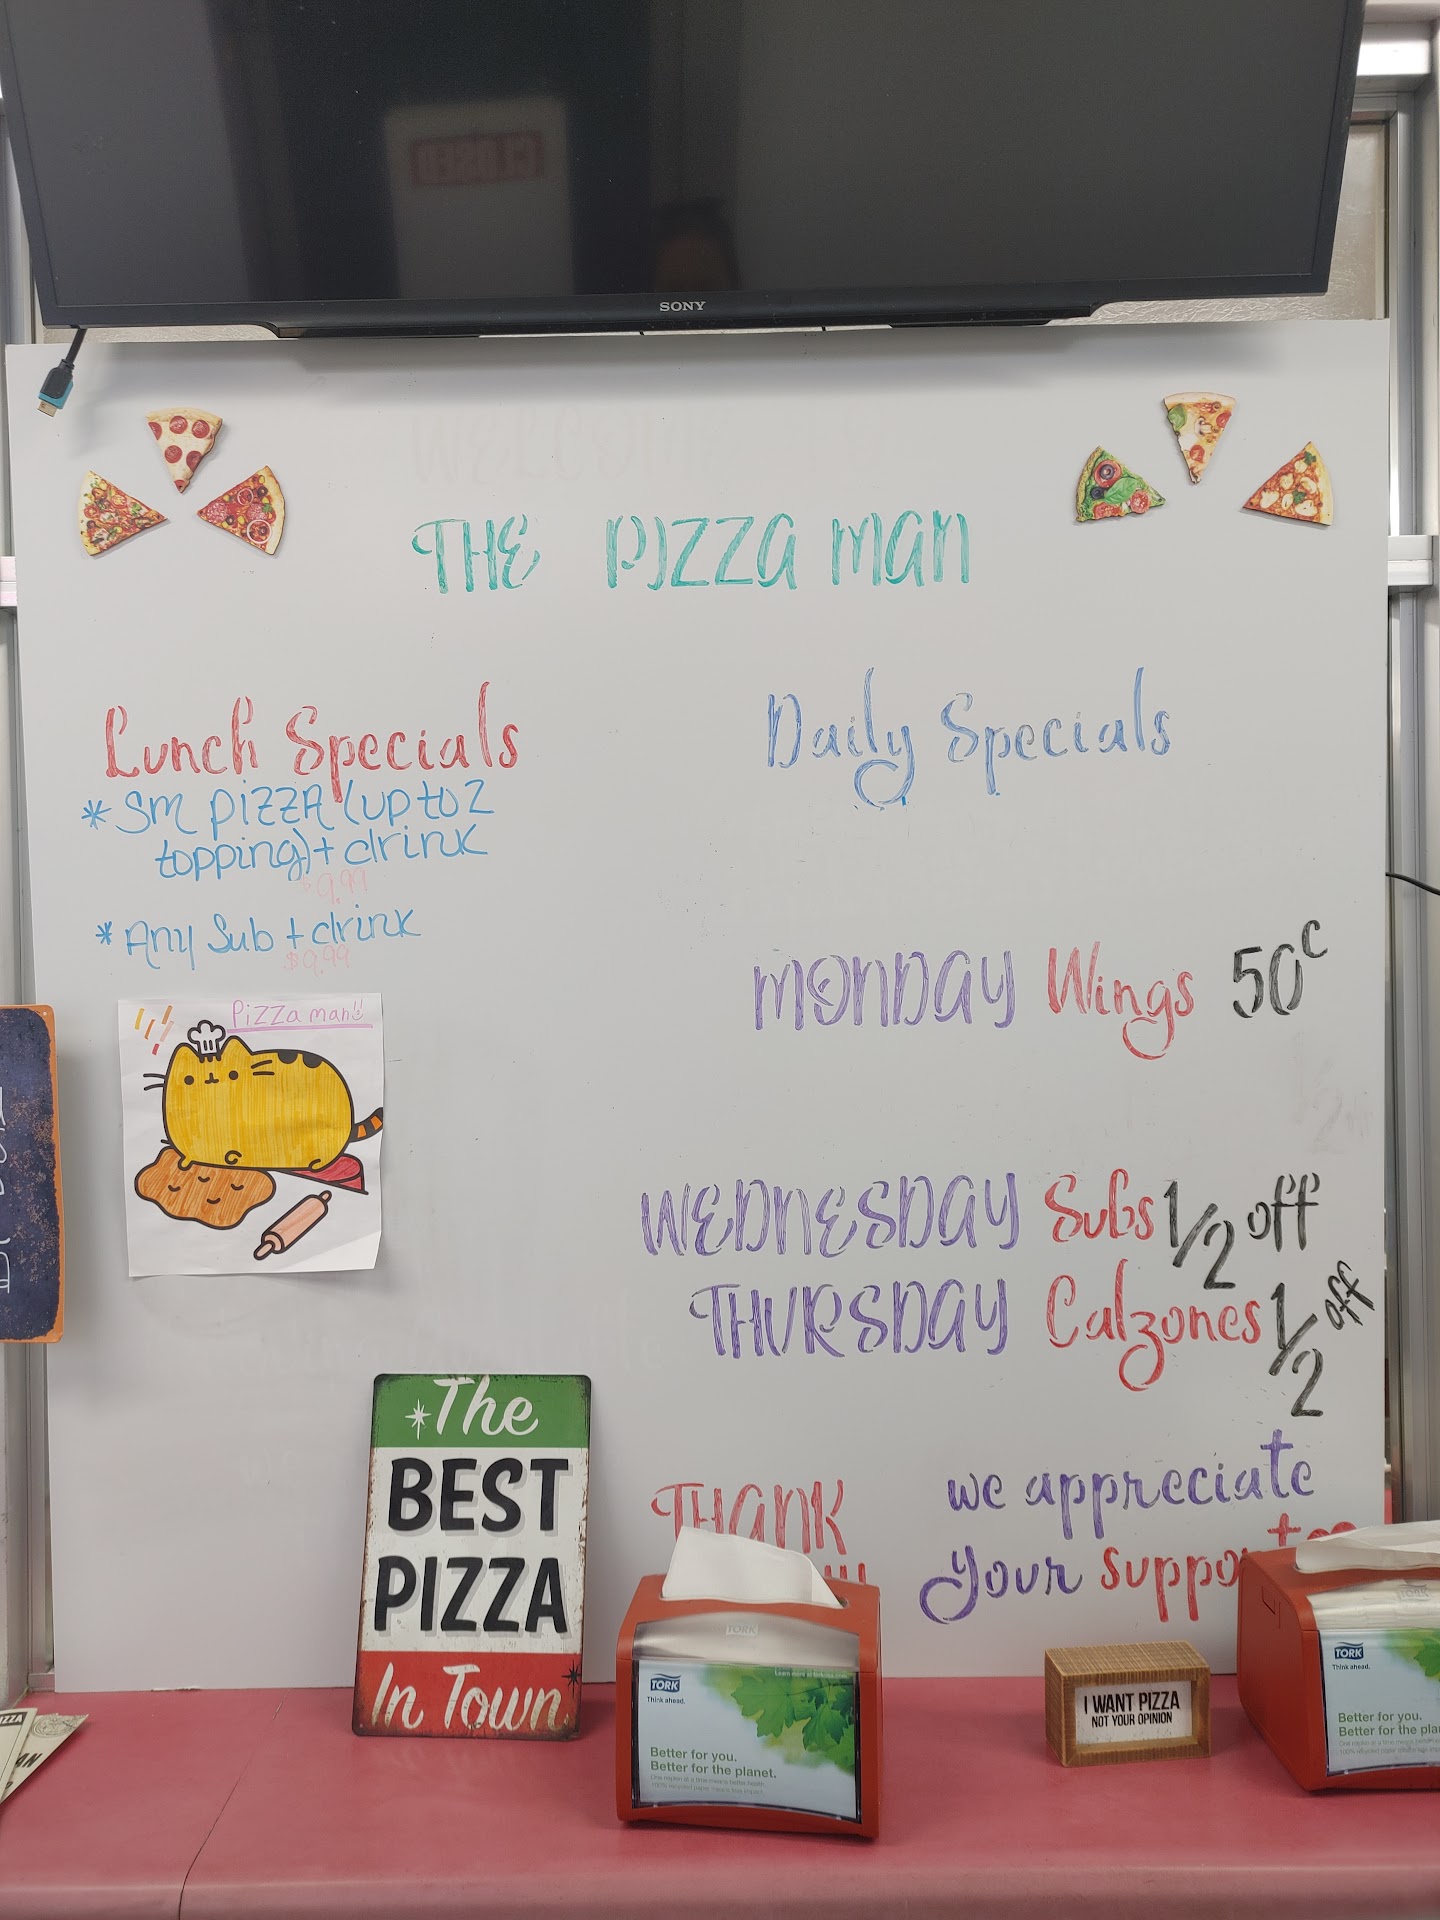 SONY
THE PIZZA MAN
Lunch Specials
* Sm PIZZA (up to 2
topping) + drink
$9.99
* Any Sub + drink
$9.99
Pizza man!!
Daily Specials
MONDAY Wings 50c
WEDNESDAY Subs 1/2 off
THURSDAY Calzones 1/2 off
THANK
we appreciate
your
The
BEST
PIZZA
In Town
TORK
TORK
Think ahead.
Better for you.
Better for the planet.
I WANT PIZZA
NOT YOUR OPINION
TORK
TORK
Think ahead.
Better for you.
Better for the